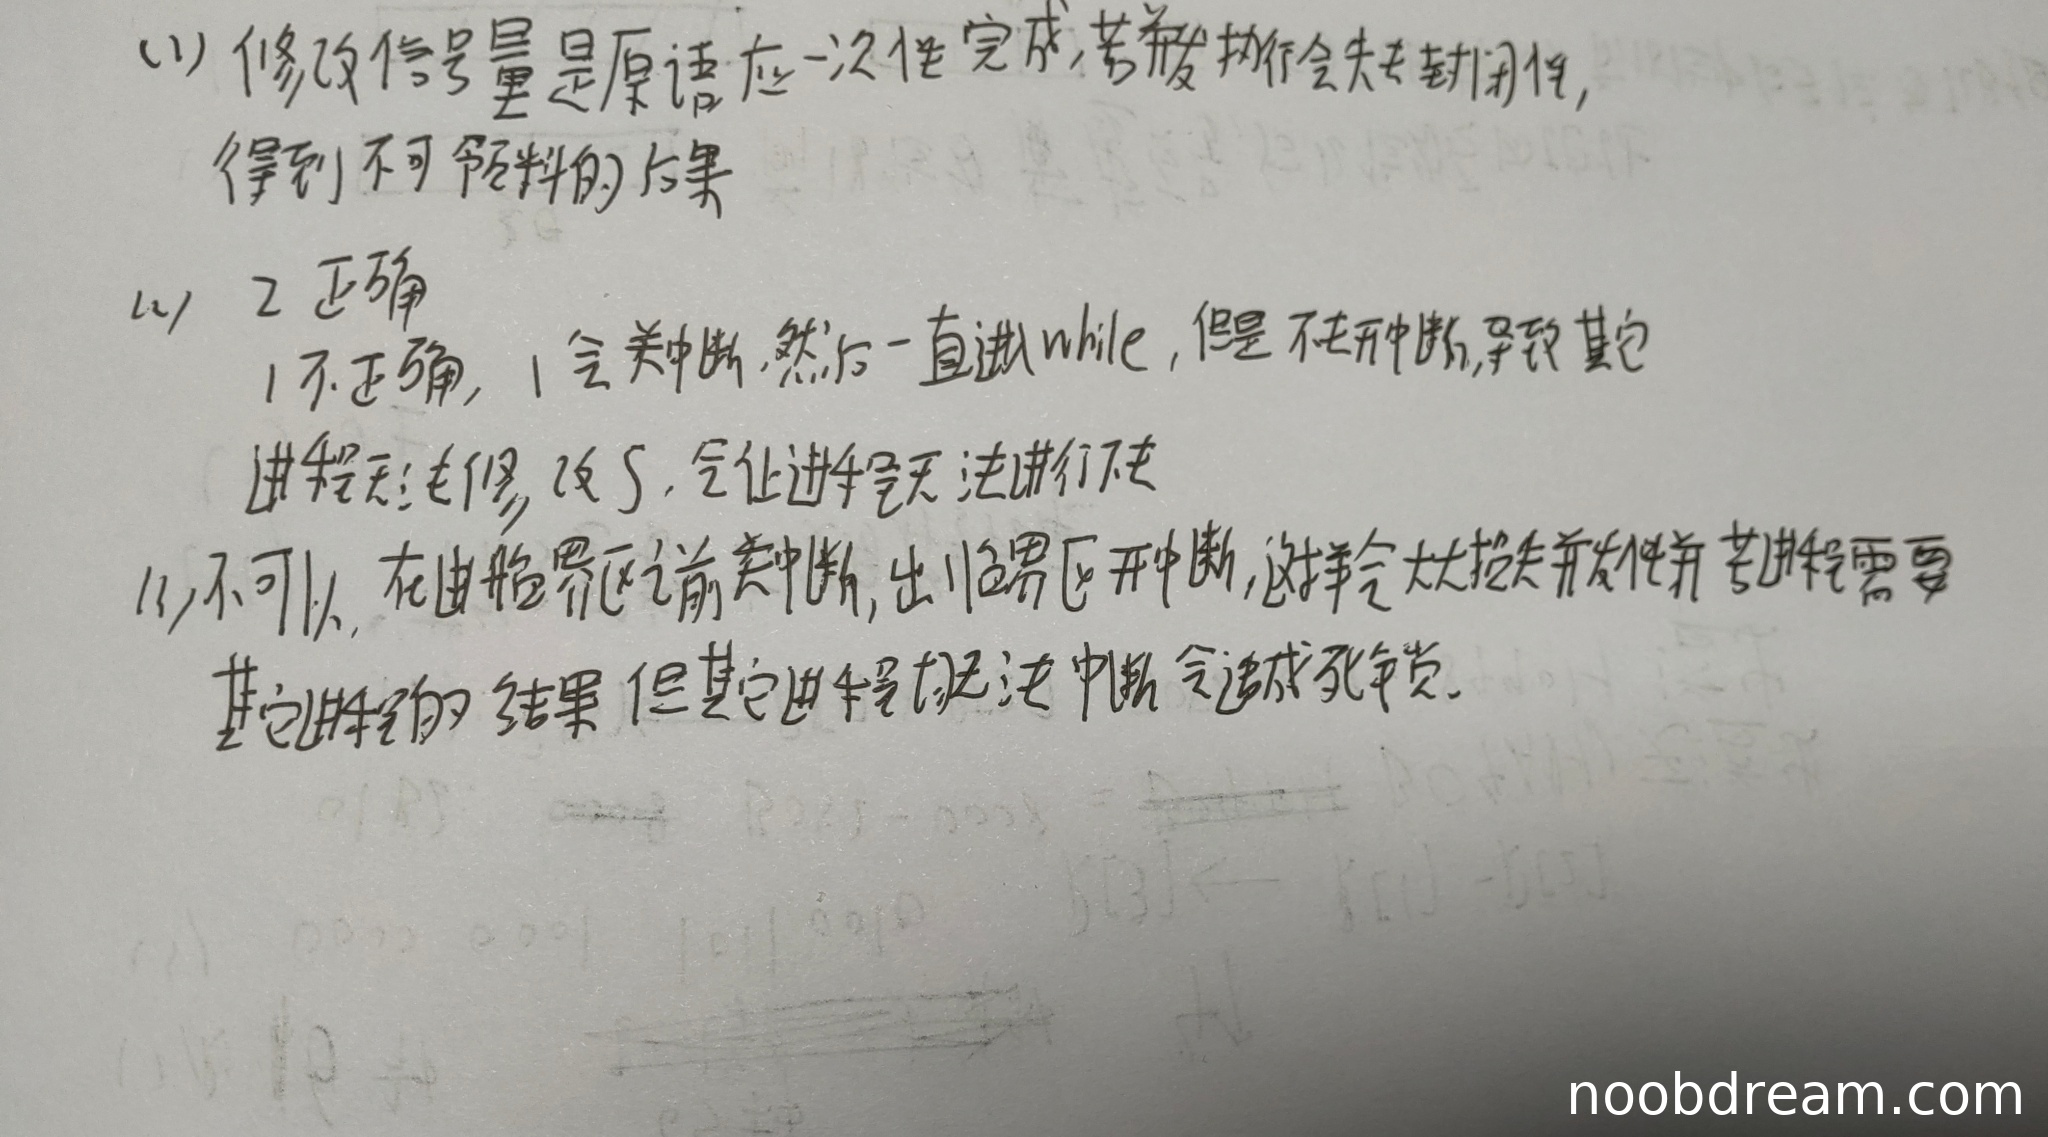 (1) 修改信号量是原语应一次性完成,若并发执行会失去封闭性,
得到不可预料的后果
(2) 2 正确
1 不正确, 1 会关中断,然后一直进入while,但是不去开中断,导致其它
进程无法修改S,会让进程无法进行下去
(3) 不可以, 在进临界区之前关中断,出临界区开中断,这样会大大损失并发性并若进程需要
其它进程的结果 但其它进程无法中断会造成死锁.
noobdream.com